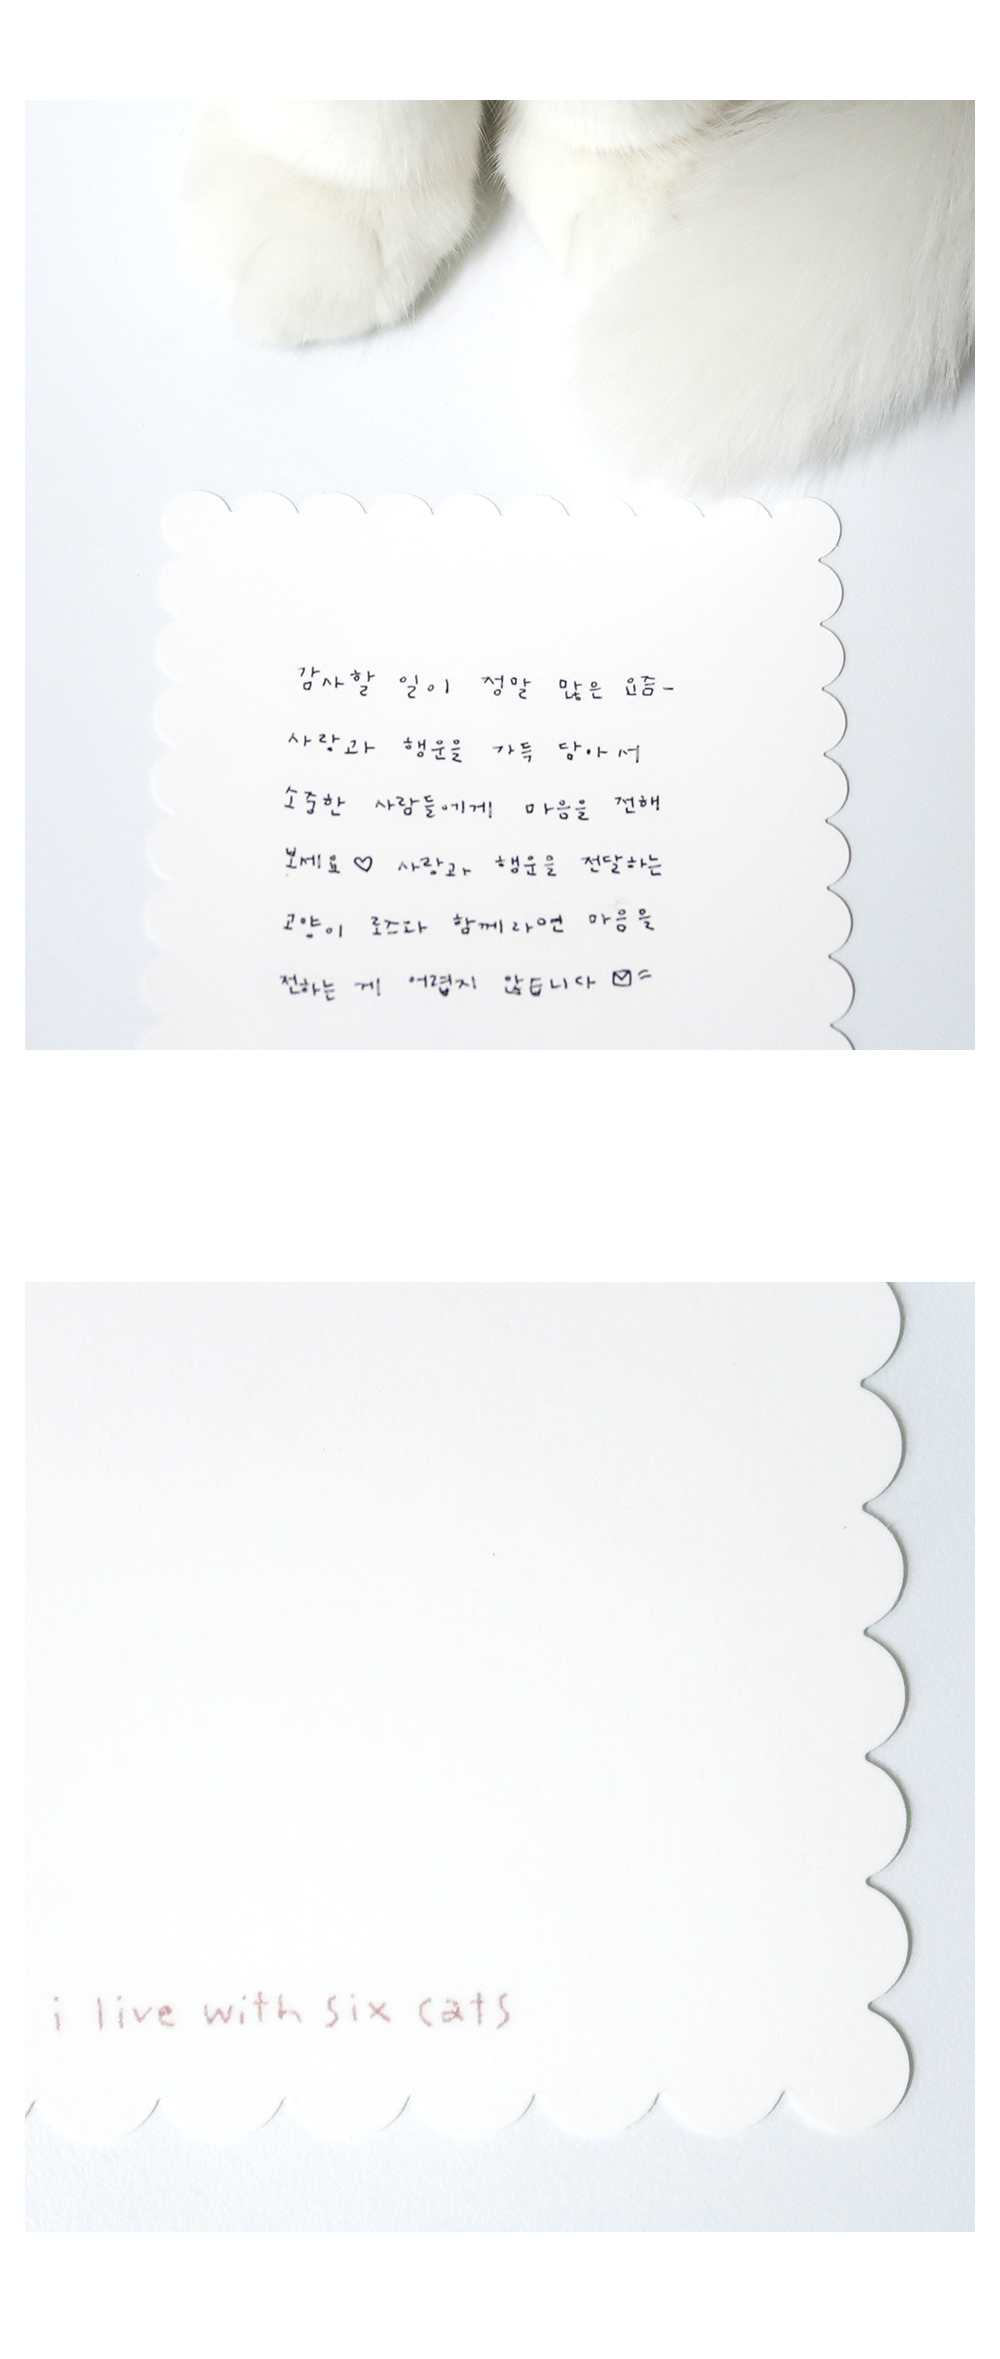 감사할 일이 정말 많은 요즘~
사랑과 행운을 가득 담아서
소중한 사람들에게 마음을 전해
보세요♡ 사랑과 행운을 전달하는
고양이 로즈와 함께라면 마음을
전하는 게 어렵지 않습니다
i live with six cats